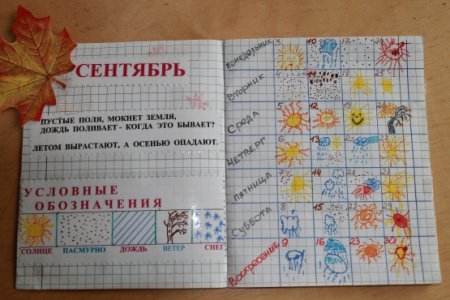 СЕНТЯБРЬ
ПУСТЫЕ ПОЛЯ, МОКНЕТ ЗЕМЛЯ,
ДОЖДЬ ПОЛИВАЕТ - КОГДА ЭТО БЫВАЕТ?
ЛЕТОМ ВЫРАСТАЮТ, А ОСЕНЬЮ ОПАДАЮТ.
УСЛОВНЫЕ
ОБОЗНАЧЕНИЯ
СОЛНЦЕ ПАСМУРНО ДОЖДЬ ВЕТЕР СНЕГ
Понедельник 3 10 17 24
Вторник 4 11
Среда 5 12 19
Четверг 6 13
Пятница
Суббота 8 15
Воскресенье 9 16 23 30